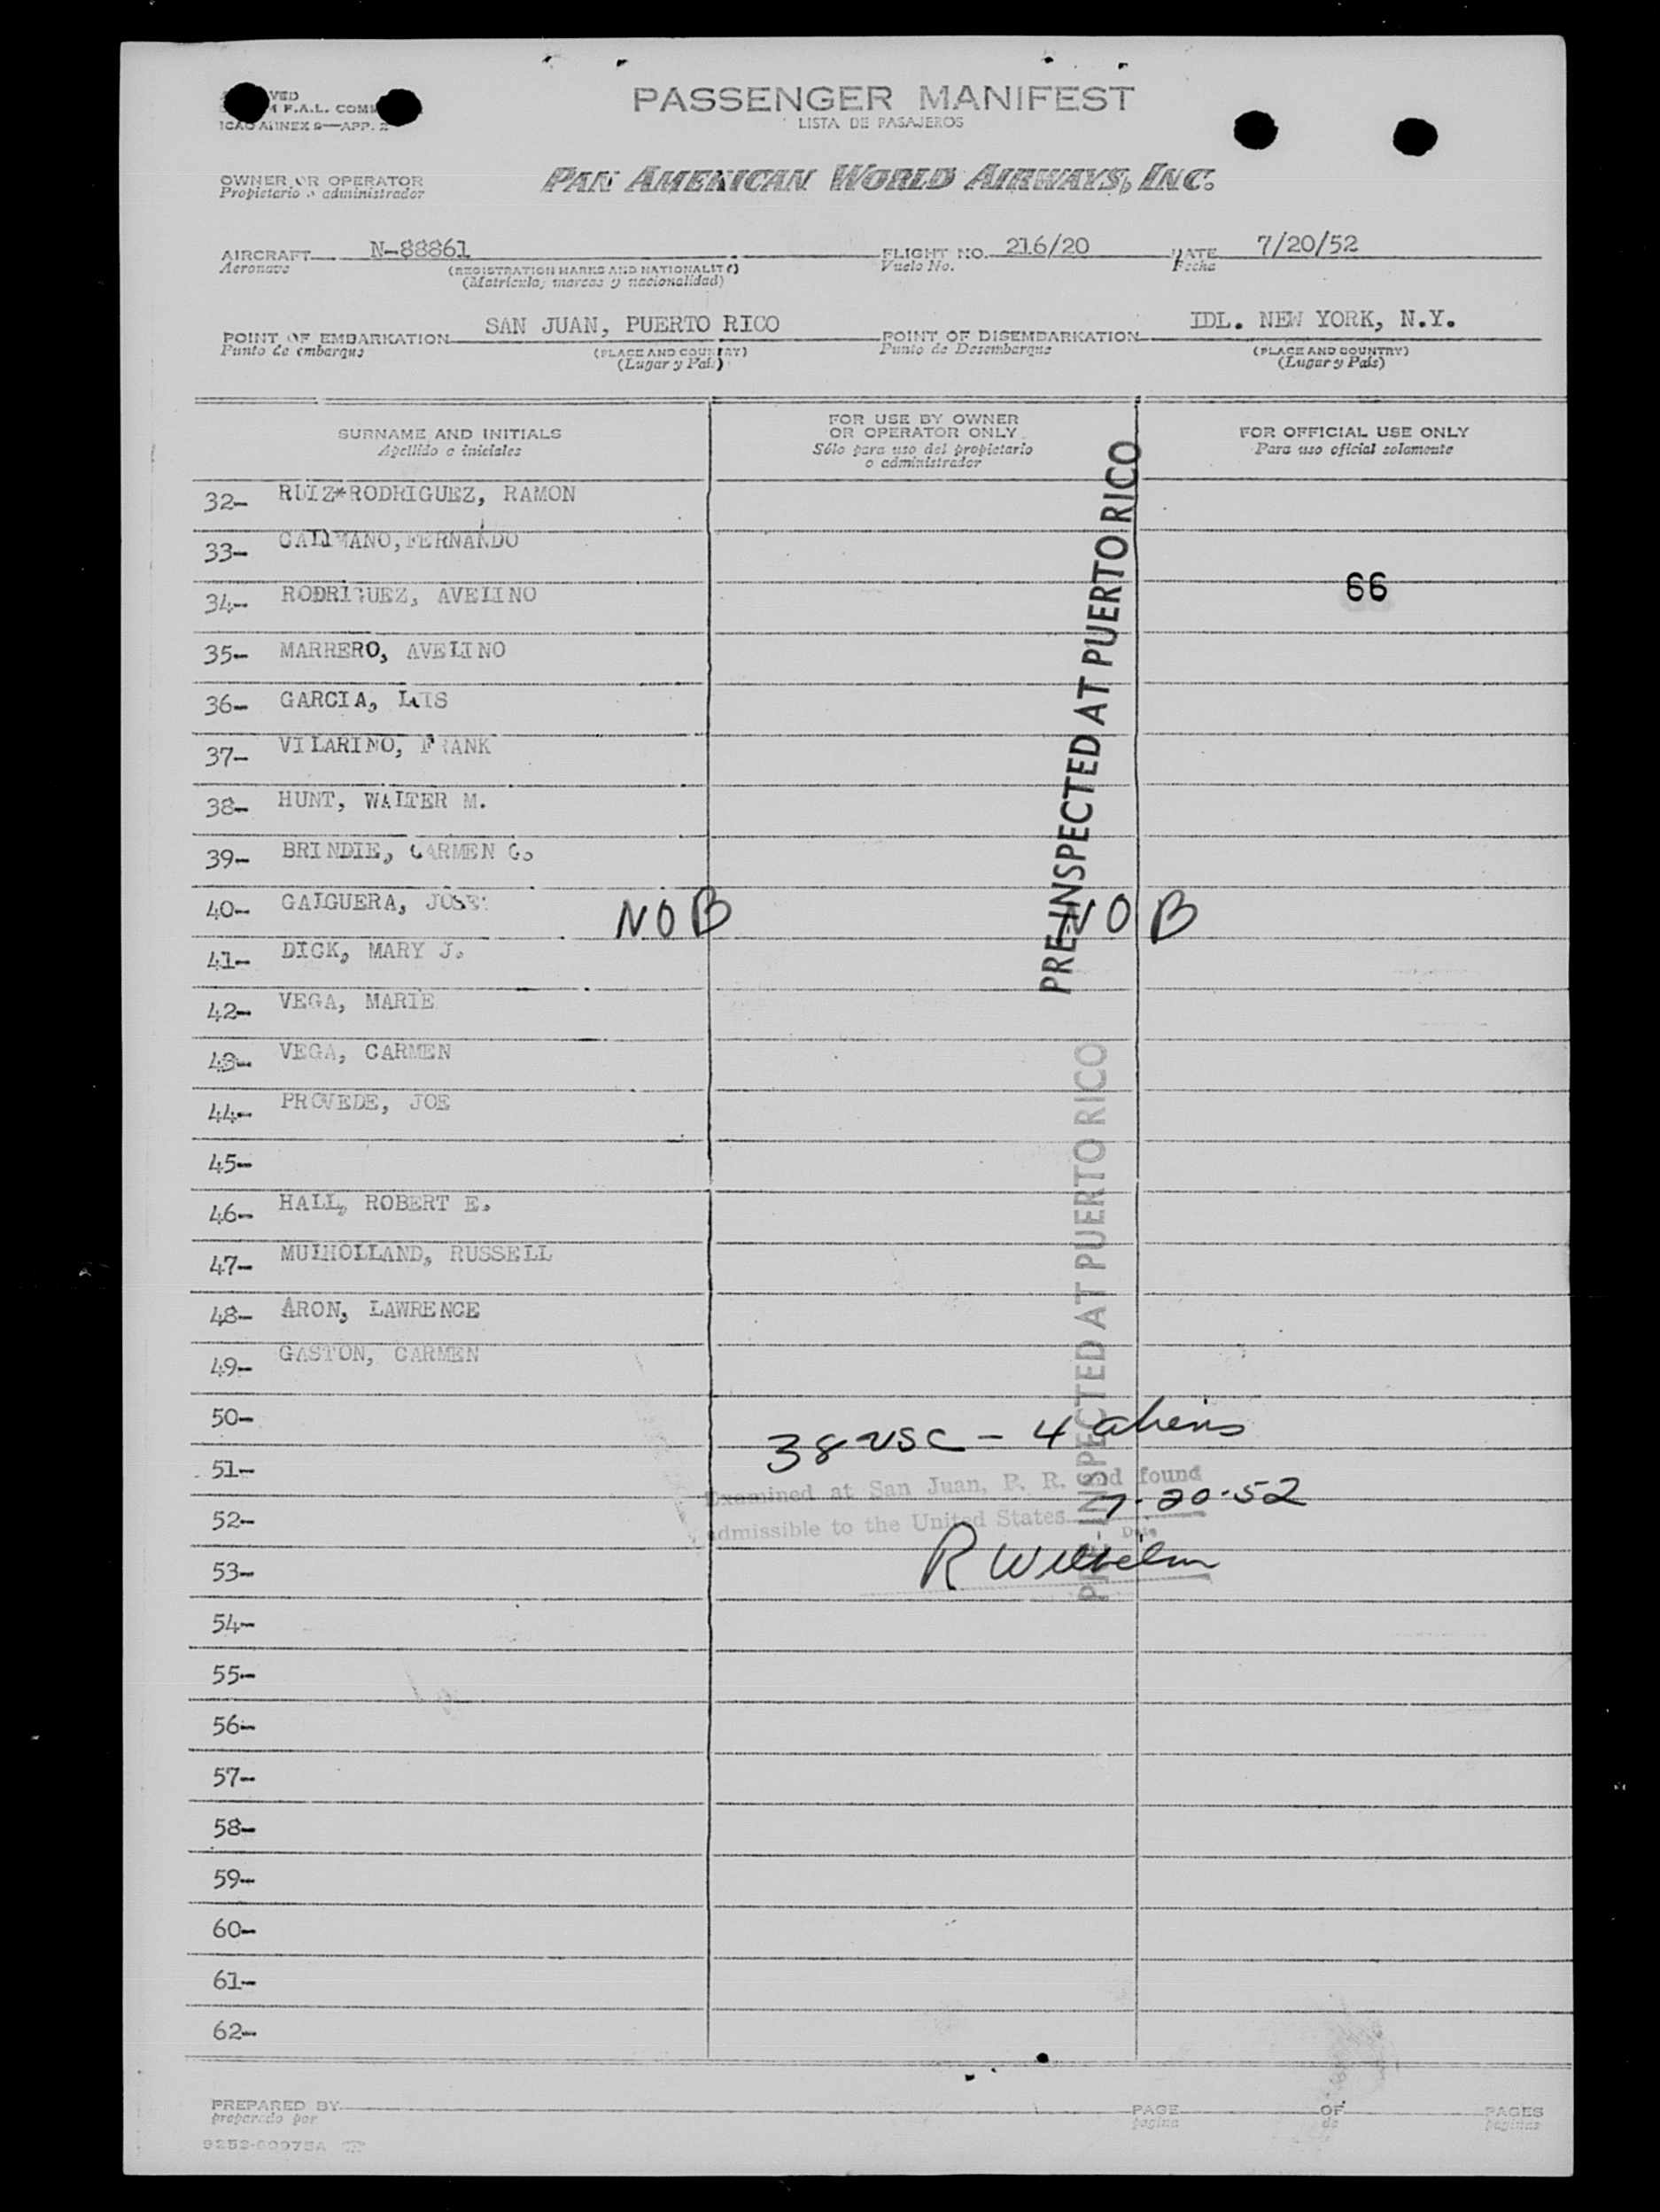 PASSENGER MANIFEST
LISTA DE PASAJEROS
F.A.L.
ICAO ANNEX 9—APP. 2
OWNER OR OPERATOR
Propietario o administrador
PAN AMERICAN WORLD AIRWAYS, INC.
AIRCRAFT N-88861 FLIGHT NO. 216/20 DATE 7/20/52
Aeronave (REGISTRATION MARKS AND NATIONALITY) Vuelo No. Fecha
(Matricula, marcas y nacionalidad)
POINT OF EMBARKATION SAN JUAN, PUERTO RICO POINT OF DISEMBARKATION IDL. NEW YORK, N.Y.
Punto de embarque (PLACE AND COUNTRY) Punto de Desembarque (PLACE AND COUNTRY)
(Lugar y País) (Lugar y País)
SURNAME AND INITIALS
Apellido e iniciales
FOR USE BY OWNER
OR OPERATOR ONLY
Sólo para uso del propietario
o administrador
FOR OFFICIAL USE ONLY
Para uso oficial solamente
32- RUIZ*RODRIGUEZ, RAMON
33- CALIMANO, FERNANDO
34- RODRIGUEZ, AVELINO
66
35- MARRERO, AVELINO
36- GARCIA, LUIS
37- VILARINO, FRANK
38- HUNT, WALTER M.
39- BRINDIE, CARMEN G.
40- GALGUERA, JOSE NOB NOB
41- DICK, MARY J.
42- VEGA, MARIE
43- VEGA, CARMEN
44- PROVEDE, JOE
45-
46- HALL, ROBERT E.
47- MULHOLLAND, RUSSELL
48- ARON, LAWRENCE
49- GASTON, CARMEN
PRE-INSPECTED AT PUERTO RICO
PRE-INSPECTED AT PUERTO RICO
50-
38 USC - 4 aliens
51-
Examined at San Juan, P. R. and found
admissible to the United States 7-20-52
Date
52-
R Wilhelm
53-
54-
55-
56-
57-
58-
59-
60-
61-
62-
PREPARED BY PAGE OF PAGES
preparado por página de páginas